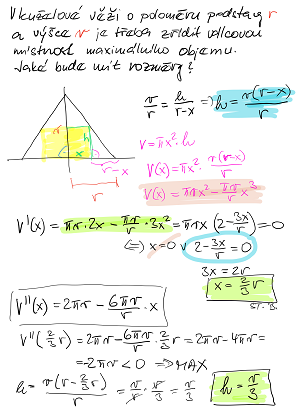 V kuželové věži o poloměru podstavy r
a výšce v je třeba zřídit válcovou
místnost maximálního objemu.
Jaké bude mít rozměry?
v/r = h/(r-x) => h = v(r-x)/r
V = πx² · h
V(x) = πx² · v(r-x)/r
V(x) = πvx² - πv/r x³
v
h
x
r-x
r
V'(x) = πv·2x - πv/r · 3x² = πvx (2 - 3x/r) = 0
(=) x=0 v 2 - 3x/r = 0
3x = 2r
x = 2/3 r
V''(x) = 2πv - 6πv/r · x
V''(2/3 r) = 2πv - 6πv/r · 2/3 r = 2πv - 4πv =
= -2πv < 0 => MAX
h = v(r - 2/3 r)/r = v · r/3 / r = v/3
h = v/3